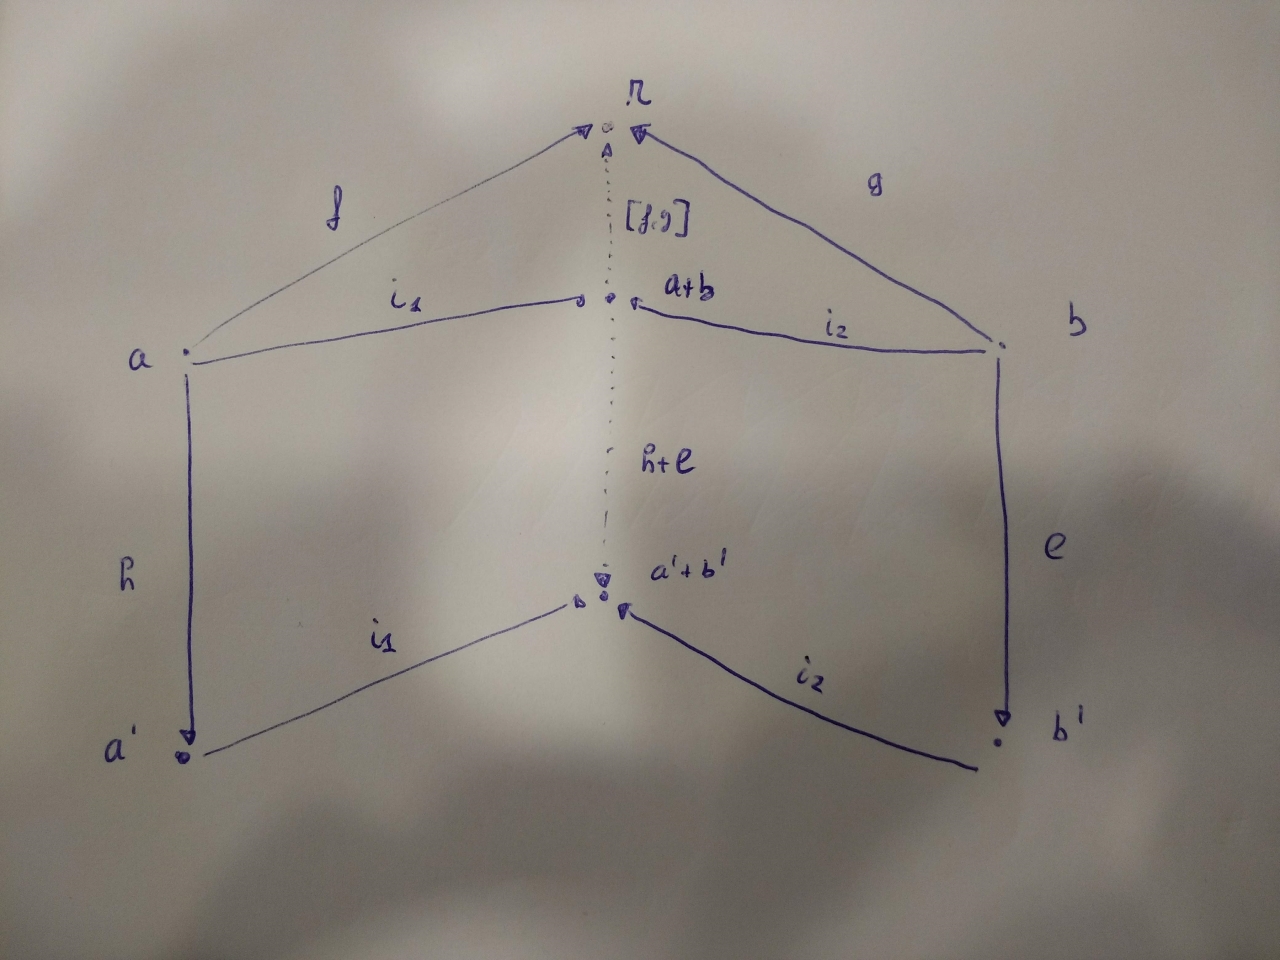 r
f
g
[f,g]
i₁
a+b
i₂
a
b
h+e
h
e
a'+b'
i₁
i₂
a'
b'